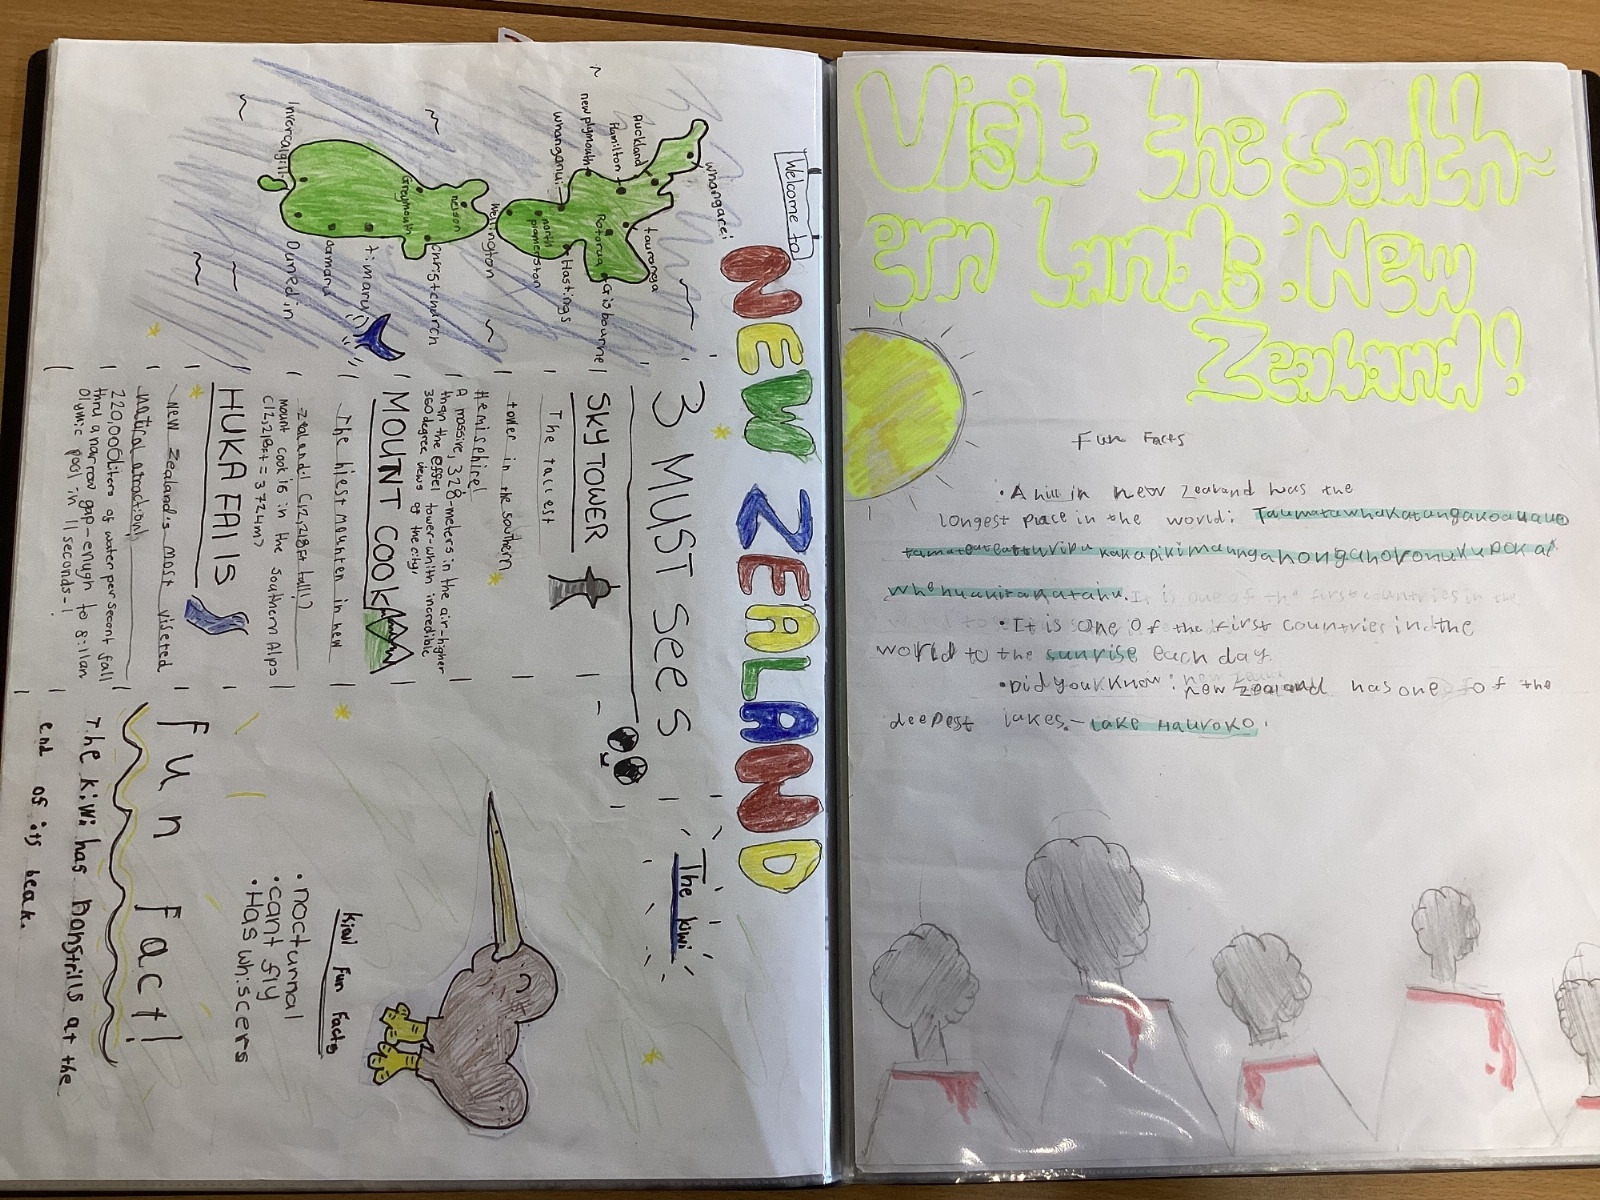 Welcome to
NEW ZEALAND
whangarei
Auckland
Hamilton
tauronga
new plymouth
Rotorua
Gisbourne
whanganui
Hastings
north
plamerston
Wellington
nelson
Greymouth
Christchrch
timaru
oamaru
Dunedin
Invercalgill
3 MUST SEES
SKY TOWER
The tallest
tower in the southern
Hemisphire!
A massive, 328-meters in the air-higher
than the effel tower-with incredible
360 degree views of the city,
MOUNT COOK
The hiest mounten in new
zealand! (12,218ft tall!)
mount cook is in the southern Alps
(12,218ft = 3724m)
HUKA FAllS
New zealand's most viseted
natral atraction!
220,000liters of water per secont fall
thru a narrow gap-enugh to fill an
Olymic pool in 11 seconds-!
The kiwi
kiwi Fun Facts
• nocturnal
• cant fly
• Has whiscers
fun fact!
The kiwi has nonstrills at the
end of its beak.
Visit the South-
ern lands: New
Zealand!
Fun Facts
• A hill in new zealand has the
longest place in the world:
• It is one of the first countries in the
world to the sunrise each day.
• Did you know: new zealand has one of the
deepest lakes - lake Hauroko.